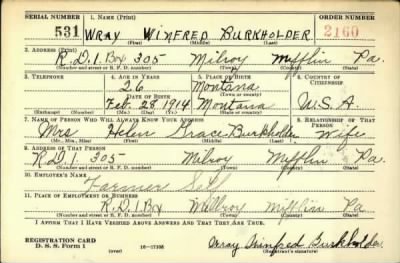 SERIAL NUMBER 1. NAME (Print) ORDER NUMBER
531 WRAY WINFRED BURKHOLDER 2160
(First) (Middle) (Last)
2. ADDRESS (Print)
R.D.1. Box 305 Milroy Mifflin Pa.
(Number and street or R. F. D. number) (Town) (County) (State)
3. TELEPHONE 4. AGE IN YEARS 5. PLACE OF BIRTH 6. COUNTRY OF CITIZENSHIP
26 Montana
DATE OF BIRTH (Town or county)
Feb. 28 1914 Montana U.S.A.
(Exchange) (Number) (Mo.) (Day) (Yr.) (State or country)
7. NAME OF PERSON WHO WILL ALWAYS KNOW YOUR ADDRESS 8. RELATIONSHIP OF THAT PERSON
Mrs Helen Grace Burkholder Wife
(Mr., Mrs., Miss) (First) (Middle) (Last)
9. ADDRESS OF THAT PERSON
R.D.1. 305 Milroy Mifflin Pa.
(Number and street or R. F. D. number) (Town) (County) (State)
10. EMPLOYER'S NAME
Farmer Self
11. PLACE OF EMPLOYMENT OR BUSINESS
R.D.1 Box Millroy Mifflin Pa
(Number and street or R. F. D. number) (Town) (County) (State)
I AFFIRM THAT I HAVE VERIFIED ABOVE ANSWERS AND THAT THEY ARE TRUE.
REGISTRATION CARD
D. S. S. Form 1 16-17105 Wray Winfred Burkholder
(Registrant's signature)